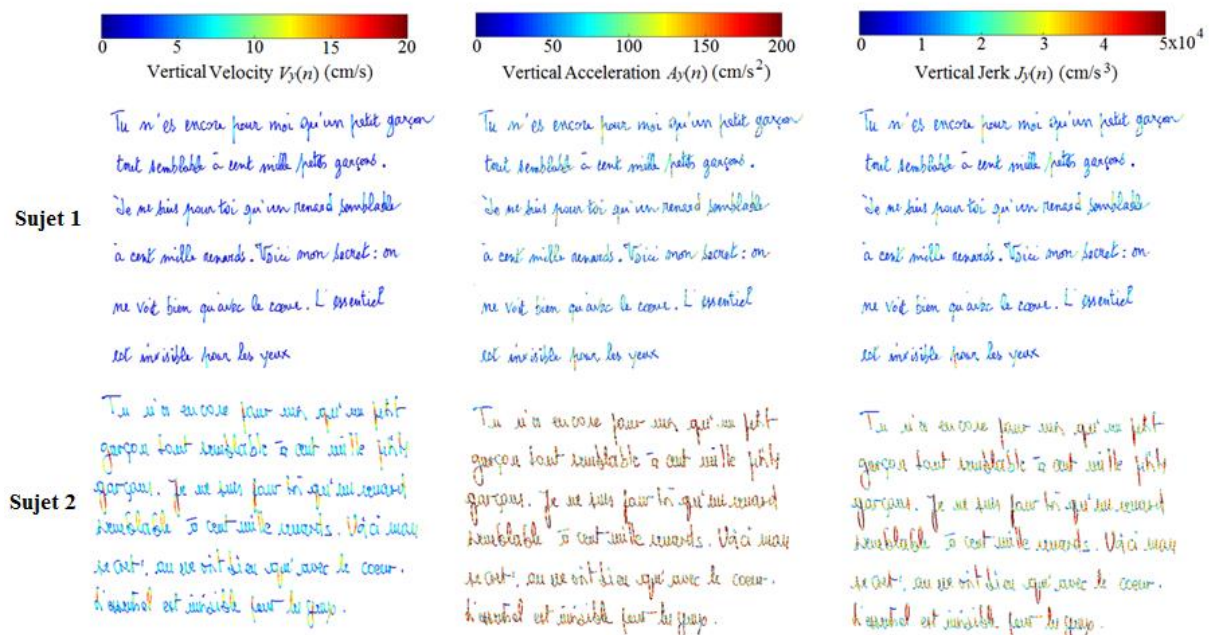 0 5 10 15 20
Vertical Velocity Vy(n) (cm/s)
0 50 100 150 200
Vertical Acceleration Ay(n) (cm/s²)
0 1 2 3 4 5x10⁴
Vertical Jerk Jy(n) (cm/s³)
Sujet 1
Tu n'es encore pour moi qu'un petit garçon
tout semblable à cent mille petits garçons.
Je ne suis pour toi qu'un renard semblable
à cent mille renards. Voici mon secret : on
ne voit bien qu'avec le cœur. L'essentiel
est invisible pour les yeux
Tu n'es encore pour moi qu'un petit garçon
tout semblable à cent mille petits garçons.
Je ne suis pour toi qu'un renard semblable
à cent mille renards. Voici mon secret : on
ne voit bien qu'avec le cœur. L'essentiel
est invisible pour les yeux
Tu n'es encore pour moi qu'un petit garçon
tout semblable à cent mille petits garçons.
Je ne suis pour toi qu'un renard semblable
à cent mille renards. Voici mon secret : on
ne voit bien qu'avec le cœur. L'essentiel
est invisible pour les yeux
Sujet 2
Tu n'es encore pour qu'un petit
garçon tout semblable à cent mille petits
garçons. Je ne suis pour toi qu'un renard
semblable à cent mille renards. Voici mon
secret: on ne qu'avec le coeur.
L'essentiel est invisible pour les
Tu n'es encore pour qu'un petit
garçon tout semblable à cent mille petits
garçons. Je ne suis pour toi qu'un renard
semblable à cent mille renards. Voici mon
secret: on ne qu'avec le coeur.
L'essentiel est invisible pour les
Tu n'es encore pour qu'un petit
garçon tout semblable à cent mille petits
garçons. Je ne suis pour toi qu'un renard
semblable à cent mille renards. Voici mon
secret: on ne qu'avec le coeur.
L'essentiel est invisible pour les